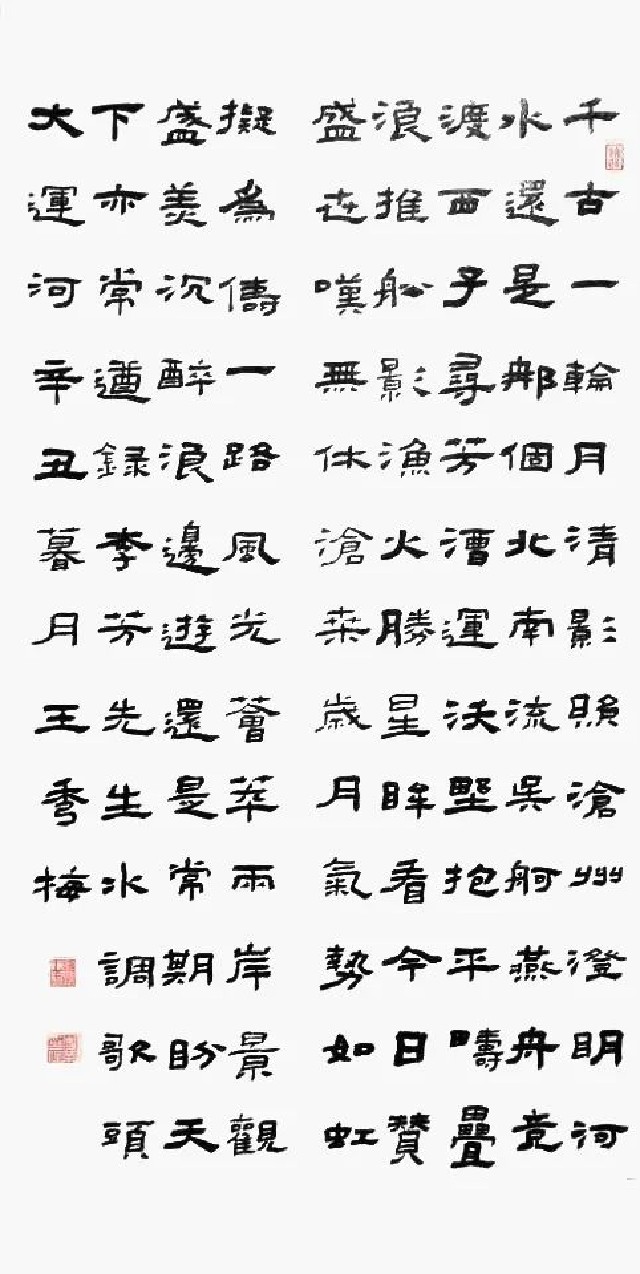 千古一輪月清影照滄州澄明河
水還是那個北南流吳舸燕舟竞
渡西子尋芳漕運沃野抱平疇疊
浪推船影漁火勝星眸看今日贊
盛世嘆無休滄桑歲月氣勢如虹
擬為儔一路風光薈萃兩岸景觀
盡羨沉醉浪邊遊還是常期盼天
下亦常遒錄李芳先生水調歌頭
大運河辛丑暮月王秀梅